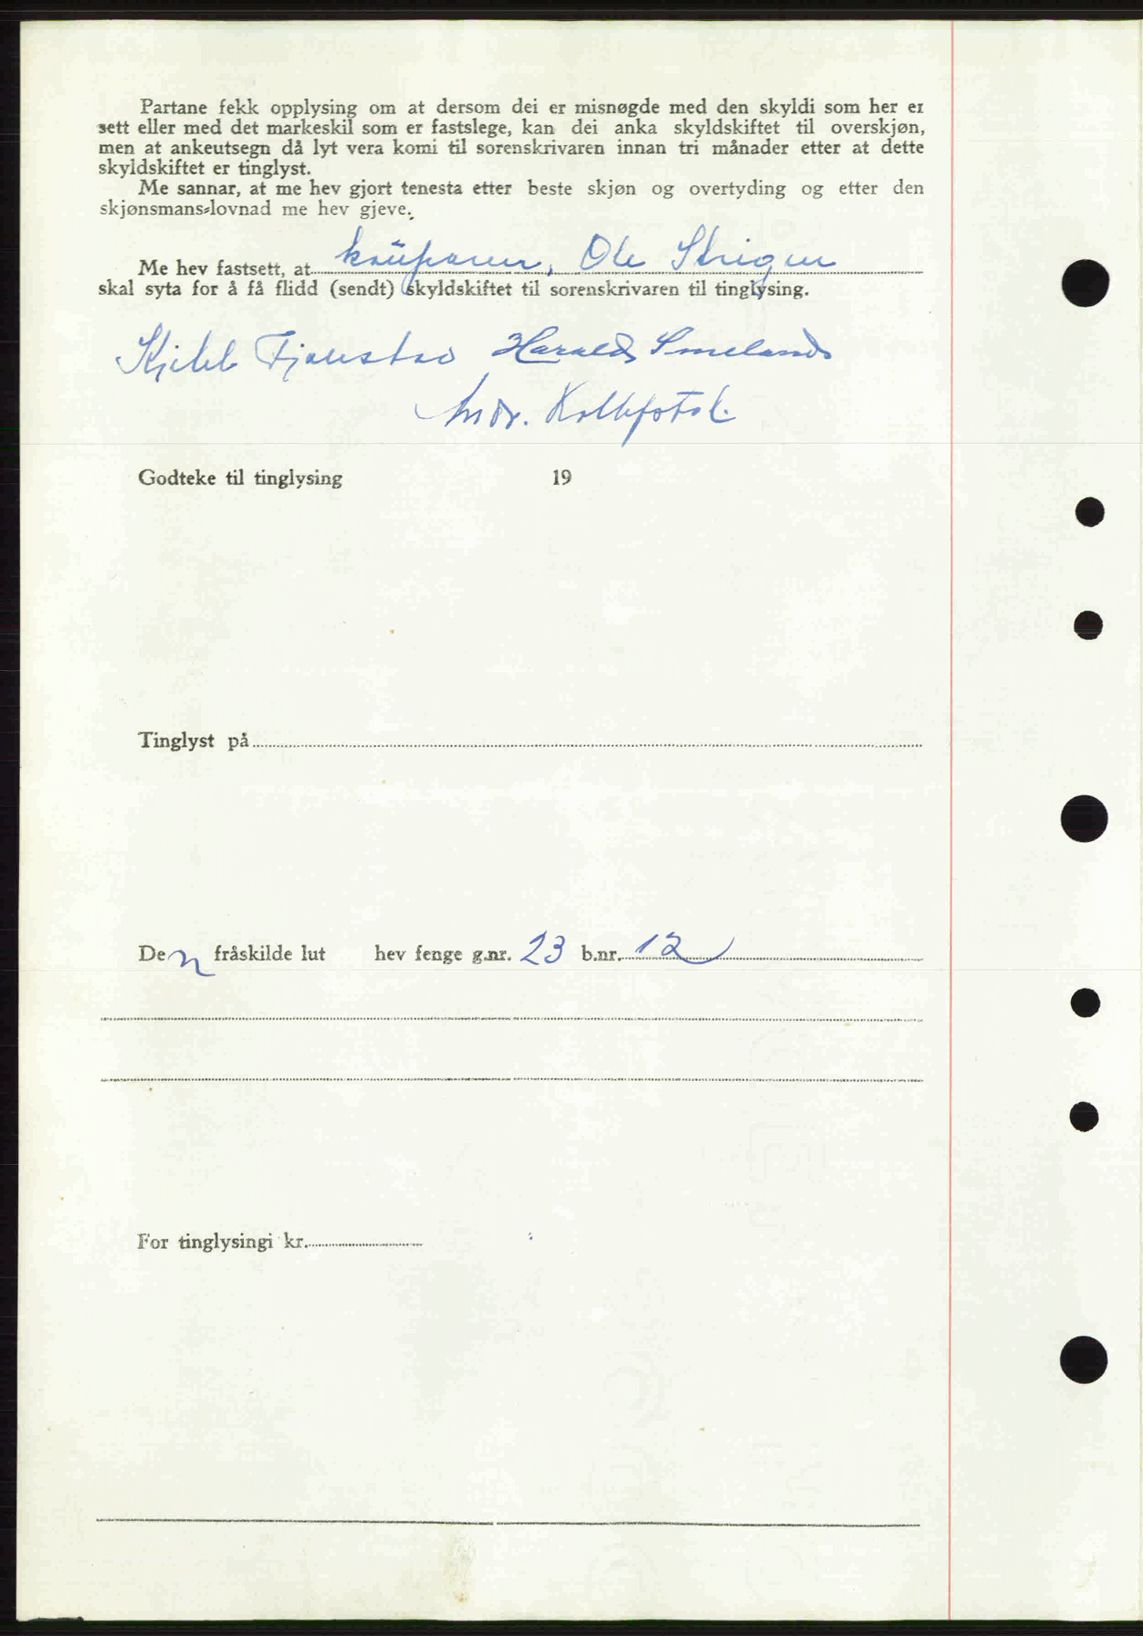 Partane fekk opplysing om at dersom dei er misnøgde med den skyldi som her er
sett eller med det markeskil som er fastslege, kan dei anka skyldskiftet til overskjøn,
men at ankeutsegn då lyt vera komi til sorenskrivaren innan tri månader etter at dette
skyldskiftet er tinglyst.
Me sannar, at me hev gjort tenesta etter beste skjøn og overtyding og etter den
skjønsmans-lovnad me hev gjeve.
Me hev fastsett, at kauparen, Ole
skal syta for å få flidd (sendt) skyldskiftet til sorenskrivaren til tinglysing.
Harald Smeland
Andr.
Godteke til tinglysing 19
Tinglyst på
Den fråskilde lut hev fenge g.nr. 23 b.nr. 12
For tinglysingi kr.